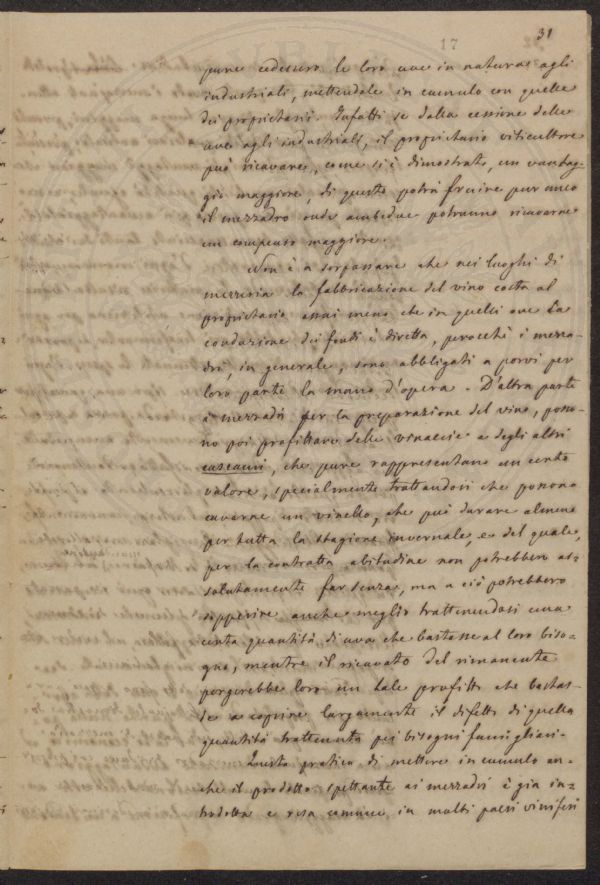 31
17
pure cedessero le loro uve in natura agli
industriali, mettendole in cumulo con quelle
dei proprietarii. Infatti se dalla cessione delle
uve agli industriali, il proprietario viticultore
può ricavare, come si è dimostrato, un vantag-
gio maggiore, di questo potrà fruire pur anco
il mezzadro onde ambedue potranno ricavarne
un compenso maggiore.
Non è a sorpassare che nei luoghi di
mezzeria la fabbricazione del vino costa al
proprietario assai meno che in quelli ove la
conduzione dei fondi è diretta, perocchè i mezza-
dri, in generale, sono obbligati a porvi per
loro parte la mano d'opera. D'altra parte
i mezzadri per la preparazione del vino, posso-
no poi profittare delle vinaccie e degli altri
cascami, che pure rappresentano un certo
valore, specialmente trattandosi che possono
cavarne un vinello, che può durare almeno
per tutta la stagione invernale, e del quale,
per la contratta abitudine non potrebbero as=
solutamente far senza, ma a ciò potrebbero
sopperire anche meglio trattenendosi una
certa quantità di uva che bastasse al loro biso=
gno, mentre il ricavato del rimanente
porgerebbe loro un tale profitto che bastas-
se a coprire largamente il difetto di quella
quantità trattenuta pei bisogni famigliari.
Questa pratica di mettere in cumulo an=
che il prodotto spettante ai mezzadri è già in=
trodotta e resa comune in molti paesi viniferi